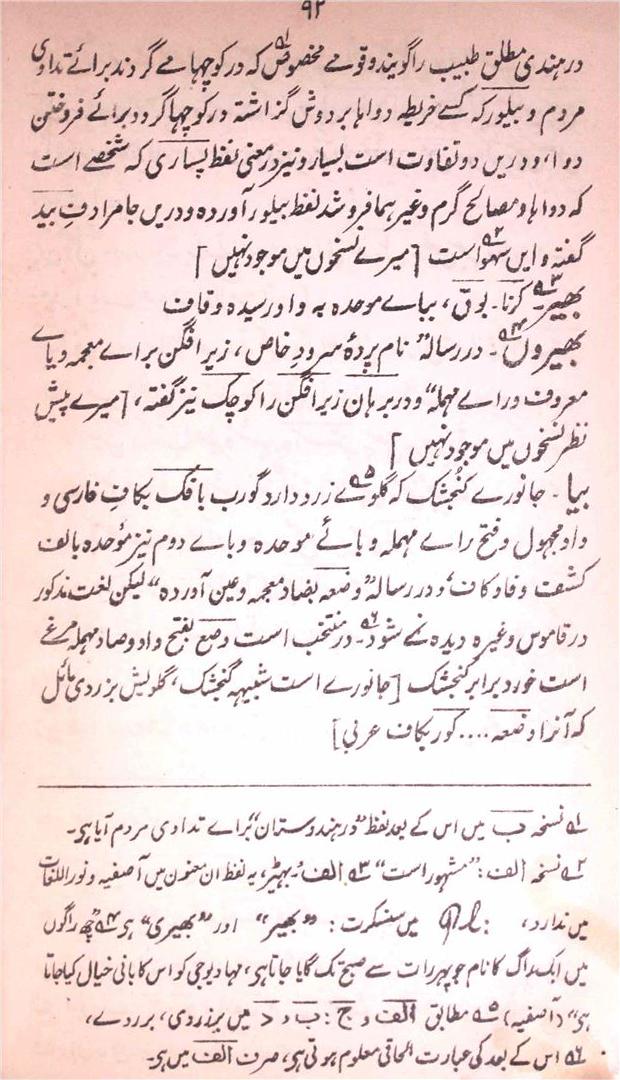 ۹۲
در ہندی مطلق طبیب را گویند و قومے مخصوص لہ۱ کہ در کوچہا مے گردند برائے تداوی
مردم و بیلور کہ کسے خریطہ دواہا بر دوش گزاشتہ در کوچہا گردد برائے فروختن
دوا، و دریں دو تفاوت است بسیار و نیز در معنی لفظ پساری کہ شخصے است
کہ دواہا و مصالح گرم وغیرہما فروشد لفظ بیلور آوردہ و دریں جا مرادف بید
گفتہ و ایں سہو لہ۲ است [میرے نسخوں میں موجود نہیں]
بھیر لہ۳۔ کرنا۔ بوق، بباے موحدہ بہ واو رسیدہ و قاف
بھیروں لہ۴۔ در رسالہ "نام پردۂ سرود خاص، زیر افگن براے معجمہ و یاے
معروف و راے مہملہ" و در برہان زیر افگن را کوچک نیز گفتہ، [میرے پیش
نظر نسخوں میں موجود نہیں]
بیا۔ جانورے کنجشک کہ گلوے لہ۵ زرد دارد گورب بافک بکاف فارسی و
واو مجہول و فتح راے مہملہ و بائے موحدہ و باے دوم نیز موحدہ بالف
کشفت و فا و کاف، و در رسالہ "وضعہ بضاد معجمہ و عین آوردہ" لیکن لغت مذکور
در قاموس وغیرہ دیدہ نمے شود لہ۶۔ در منتخب است وصع بفتح واو و صاد مہملہ مرغے
است خورد برابر کنجشک [جانورے است شبیہہ گنجشک، گلویش بزردی مائل
کہ آنرا وضعہ .... کور بکاف عربی]
لہ۱ نسخہ ب میں اس کے بعد لفظ "در ہندوستان" براے تداوی مردم آیا ہی۔
لہ۲ نسخہ الف: "مشہور است" لہ۳ الف: بہیر، یہ لفظ ان معنوں میں آصفیہ و نور اللغات
میں ندارد، Pl: میں سنسکرت: "بھیر" اور "بھیری" ہی لہ۴ "چھ راگوں
میں ایک راگ کا نام جو پہر رات سے صبح تک گایا جاتا ہی، مہادیو جی کو اس کا بانی خیال کیا جاتا
ہی" (آصفیہ) لہ۵ مطابق الف و ج: ب و د میں برزردی، بر ردے،
لہ۶ اس کے بعد کی عبارت الحاقی معلوم ہوتی ہی، صرف الف میں ہی۔